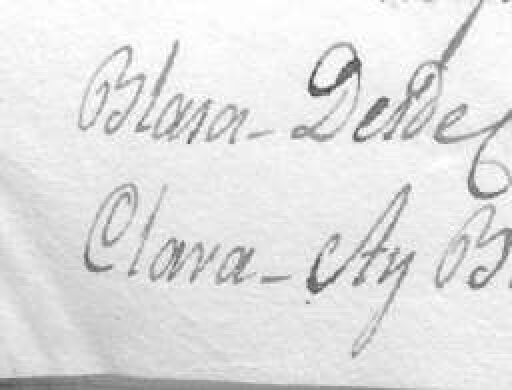 Blasa - Desde
Clara - Ay B